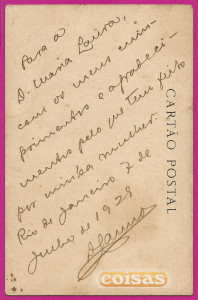 Para a
D. Maria Laura,
com os meus cum-
primentos e agradeci-
mentos pelo que tem feito
por minha mulher.
Rio de Janeiro 7 de
Junho de 1929
CARTÃO POSTAL
coisas